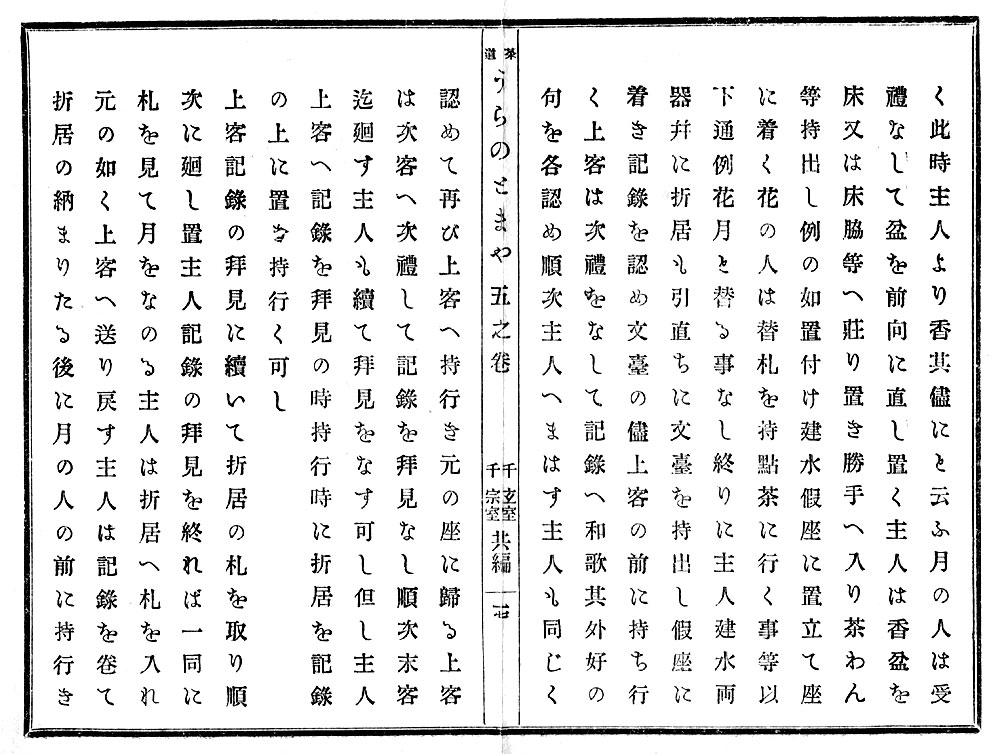 く此時主人より香其儘にと云ふ月の人は受
禮なして盆を前向に直し置く主人は香盆を
床又は床脇等へ莊り置き勝手へ入り茶わん
等持出し例の如置付け建水假座に置立て座
に着く花の人は替札を持點茶に行く事等以
下通例花月と替る事なし終りに主人建水両
器幷に折居も引直ちに文臺を持出し假座に
着き記錄を認め文臺の儘上客の前に持ち行
く上客は次禮をなして記錄へ和歌其外好の
句を各認め順次主人へまはす主人も同じく
茶道 うらのとまや 五之卷 千玄室 千宗室 共編
認めて再び上客へ持行き元の座に歸る上客
は次客へ次禮して記錄を拜見なし順次末客
迄廻す主人も續て拜見をなす可し但し主人
上客へ記錄を拜見の時持行時に折居を記錄
の上に置き持行く可し
上客記錄の拜見に續いて折居の札を取り順
次に廻し置主人記錄の拜見を終れば一同に
札を見て月をなのる主人は折居へ札を入れ
元の如く上客へ送り戾す主人は記錄を卷て
折居の納まりたる後に月の人の前に持行き